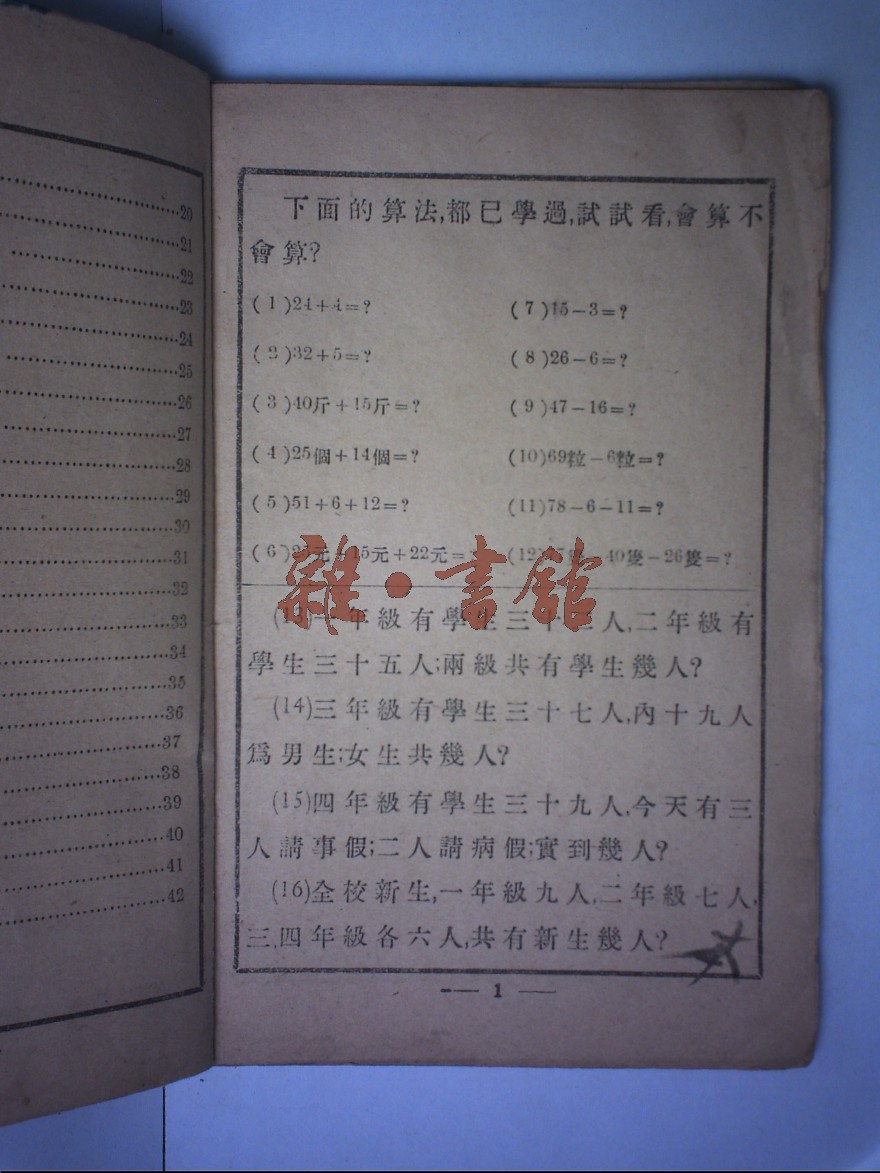 20
21
22
23
24
25
26
27
28
29
30
31
32
33
34
35
36
37
38
39
40
41
42
下面的算法,都已學過,試試看,會算不
會算?
(1)24+4=?
(2)32+5=?
(3)40斤+15斤=?
(4)25個+14個=?
(5)51+6+12=?
(6) 元+15元+22元=?
(7)15-3=?
(8)26-6=?
(9)47-16=?
(10)69粒-6粒=?
(11)78-6-11=?
(12) -40隻-26隻=?
雜·書館
(13)一年級有學生三十 人,二年級有
學生三十五人;兩級共有學生幾人?
(14)三年級有學生三十七人,內十九人
爲男生;女生共幾人?
(15)四年級有學生三十九人,今天有三
人請事假;二人請病假;實到幾人?
(16)全校新生,一年級九人,二年級七人,
三,四年級各六人,共有新生幾人?
— 1 —